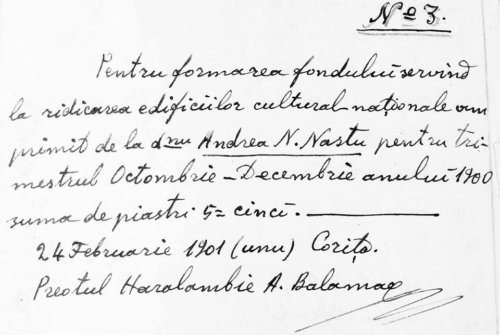 No 3.
Pentru formarea fondului servind
la ridicarea edificiilor cultural naționale am
primit de la dnu Andrea N. Nastu pentru tri-
mestrul Octombrie – Decembrie anului 1900
suma de piastri 5 = cinci.
24 Februarie 1901 (unu) Corița.
Preotul Haralambie A. Balamaq